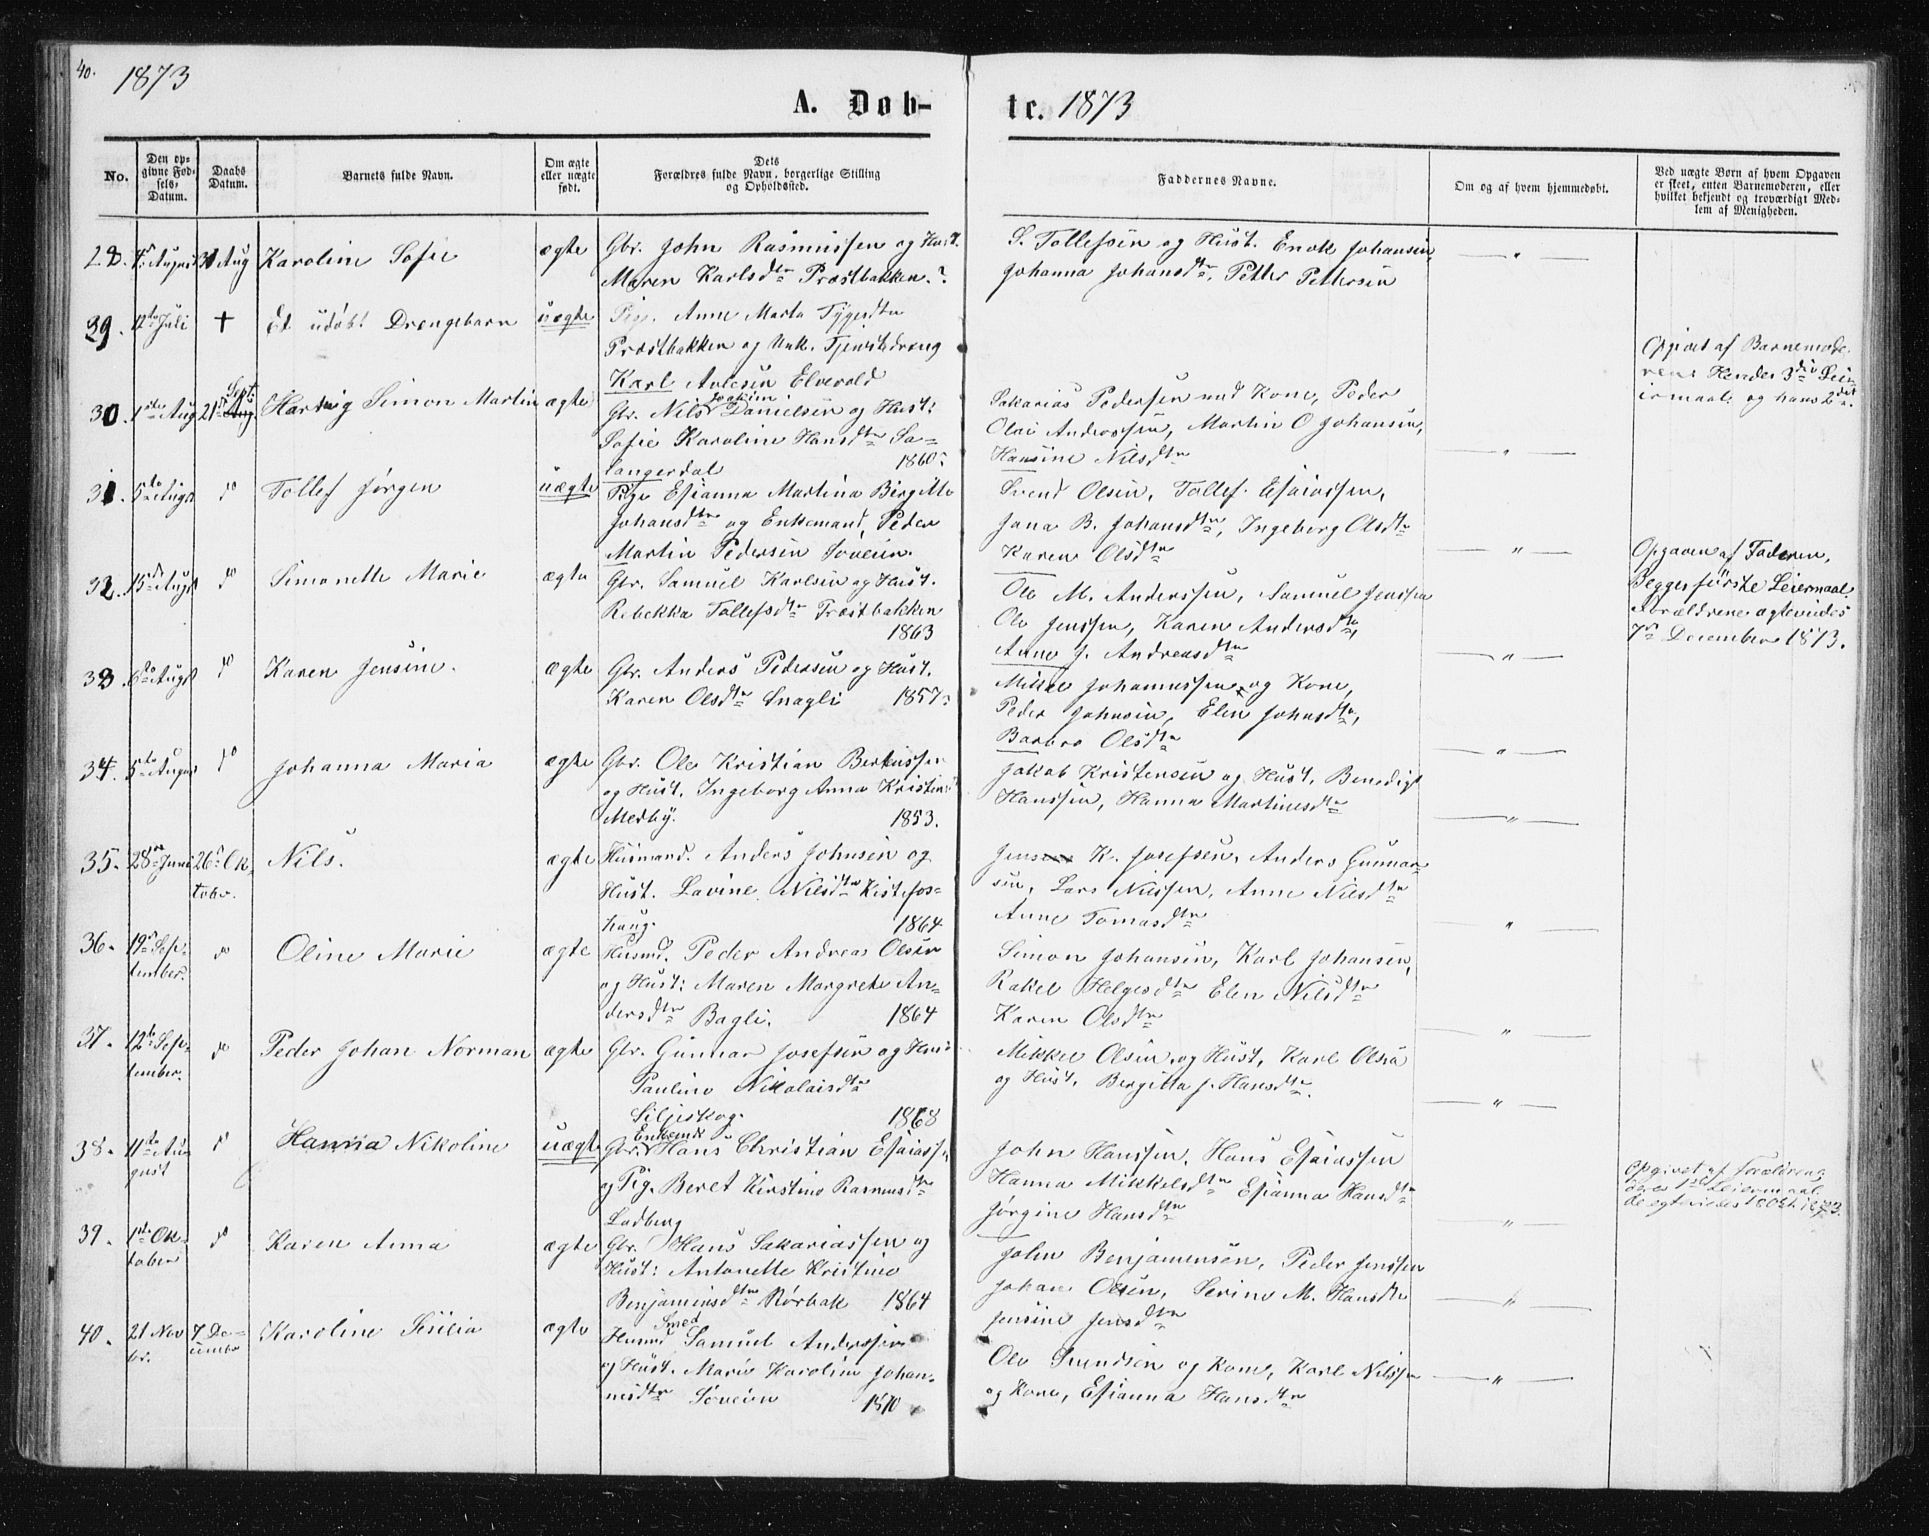 40.
1873
A. Døb-
te. 1873
No.
Den op-
givne Fød-
sels-
Datum.
Daabs
Datum.
Barnets fulde Navn.
Om ægte
eller uægte
født.
Dets
Forældres fulde Navn, borgerlige Stilling
og Opholdssted.
Faddernes Navne.
Om og af hvem hjemmedøbt.
Ved uægte Børn af hvem Opgaven
er skeet, enten Barnemoderen, eller
hvilket bekjendt og troværdigt Med-
lem af Menigheden.
28. August 31 Aug Karoline Sofie ægte Gbr. John Rasmussen og Hust.
Maren Karlsdtr Præstbakken. ?
S. Tollefsen og Hust. Enok Johansen,
Johanna Johansdtr, Petter Pettersen
— " —
29. 12te Juli + Et udøbt Drengebarn uægte Pige. Anne Marta Tygesdtr
Præstbakken og Unk. Tjenstedreng
Karl Avlesen Elvevold
Opgivet af Barnemode-
rens Hendes 3die Lei-
ermaal og hans 2det.
30. 1ste Aug 21 Sept. Aug. Hartvig Simon Martin ægte Gbr. Nils Joakim Danielsen og Hust:
Sofie Karoline Hansdtr Sa-
langerdal 1860.
Sakarias Pedersen med Kone, Peder
Olai Andersen, Martin O Johansen,
Hansine Nilsdtr
— " —
31. 5te Augst do Tollef Jørgen uægte Pige Esianna Martina Birgitte
Johansdtr og Enkemand, Peder
Martin Pedersen Søveien.
Svend Olsen, Tollef Esaiassen,
Jana B. Johansdtr, Ingeborg Olsdtr
Karen Olsdtr
— " —
Opgaven af Faderen,
Begges første Leiermaal.
Forældrene ægtevieds
7de December 1873.
32. 15de Augst do Simonette Marie ægte Gbr. Samuel Karlsen og Hust.
Rebekka Tollefsdtr Præstbakken
1863
Ole M. Anderssen, Samuel Jenssen
Ole Jenssen, Karen Andersdtr,
Anne J. Andreasdtr
— " —
33. 6te Augst do Karen Jensine. ægte Gbr. Anders Pedersen og Hust.
Karen Olsdtr Snagli 1857.
Mikkel Johannessen og Kone,
Peder Johnsen, Elen Johnsdtr,
Barbro Olsdtr
— " —
34. 5te August do Johanna Maria ægte Gbr. Ole Kristian Berteussen
og Hust. Ingeborg Anna Kristine
Medby. 1853.
Jakob Kristensen og Hust, Benedigt
Hanssen, Hanna Martinesdtr
— " —
35. 28de Juni 26 Ok-
tobr. Nils. ægte Husmand. Anders Johnsen og
Hust. Lavine Nilsdtr Kistefos-
haug. 1864
Jens K. Josefsen, Anders Gunnar-
sen, Lars Nilssen, Anne Nilsdtr
Anne Tomasdtr
— " —
36. 19de Sep-
tember. do Oline Marie ægte Husmd. Peder Andreas Olsen
og Hust: Maren Margrete An-
dersdtr Bagli. 1864
Simon Johansen, Karl Johansen,
Rakel Helgesdtr Elen Nilsdtr
Karen Olsdtr
— " —
37. 12te Sep-
tember. do Peder Johan Norman ægte Gbr. Gunnar Josefsen og Hust
Pauline Nikolaisdtr
Siljeskog. 1868
Mikkel Olsen og Hust, Karl Olsen
og Hust. Bergitta J. Hansdtr.
— " —
38. 11te Au-
gust do Hanna Nikoline uægte Gbr. Enkemd Hans Christian Esaiassen
og Pig. Beret Kirstine Rasmusdtr
Ladberg
John Hanssen, Hans Esaiassen
Hanna Mikkelsdtr Esianna Hansdtr
Jørgine Hansdtr
— " —
Opgivet af Forældrene,
deres 1ste Leiermaal.
de egtevieds 18 Okt 1873.
39. 1ste Ok-
tober do Karen Anna ægte Gbr. Hans Sakariassen og
Hust: Antonette Kristine
Benjaminsdtr Rørbak 1864
John Benjaminsen, Peder Jenssen
Johan Olsen, Serine M. Hansdtr
Jensine Jensdtr
— " —
40. 21 Nov-
br. 7 De-
cembr Karoline Sesilia ægte Husmd Smed Samuel Anderssen
og Hust. Marie Karoline Johan-
nesdtr Søveien 1870
Ole Svendsen og Kone, Karl Nilssen
og Kone, Esianna Hansdtr
— " —